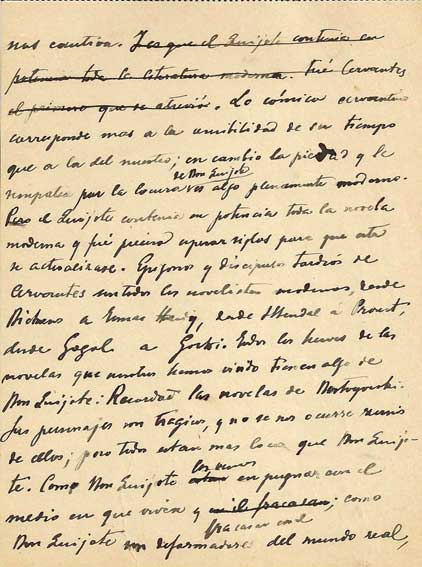 nas cautiva. Es que el Quijote contenia en
potencia toda la literatura moderna. Fué Cervantes
el primero que se atrevió. Lo cómico cervantino
corresponde mas a la sensibilidad de su tiempo
que a la del nuestro; en cambio la piedad y la
simpatia por la locura de Don Quijote es algo plenamente moderno.
Pero el Quijote contenia en potencia toda la novela
moderna y fué preciso esperar siglos para que esta
se actualizase. Epigonos y discipulos tardios de
Cervantes son todos los novelistas modernos, desde
Dickens a Tomas Hardy, desde Stendal á Proust,
desde Gogol a Gorki. Todos los heroes de las
novelas que muchos hemos vivido tienen algo de
Don Quijote. Recordad las novelas de Dostoyevski.
Sus personajes son tragicos, y no se nos ocurre reirnos
de ellos; pero todos estan mas locos que Don Quijo-
te. Como Don Quijote los vemos en pugna con el
medio en que viven y fracasan; como
fracasar
Don Quijote son reformadores del mundo real,